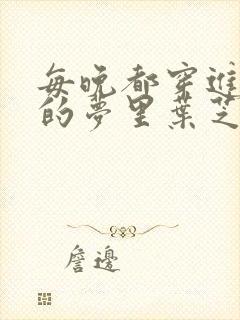 每晚都穿進
的夢里葉芝
詹邊